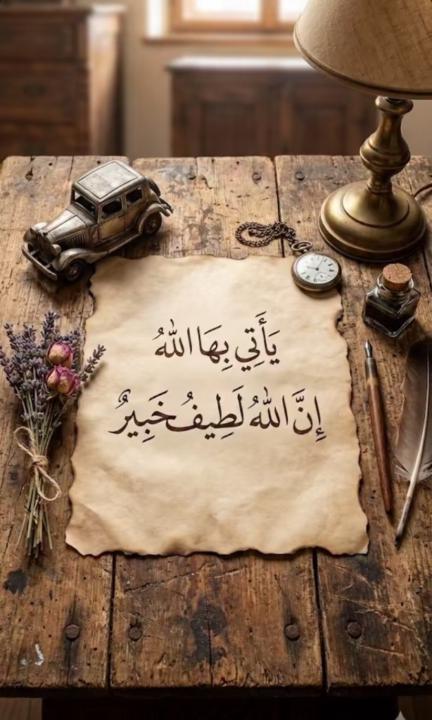 يَأْتِي بِهَا اللهُ
إِنَّ اللهُ لَطِيفُ خَبِيرٌ